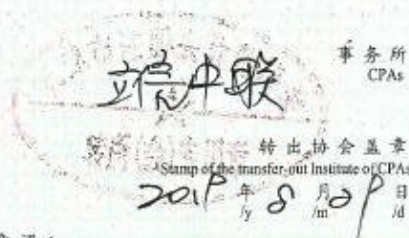 事务所
CPAs
立信中联
转出协会盖章
Stamp of the transfer-out Institute of CPAs
201 年 8 月 29 日
/y /m /d